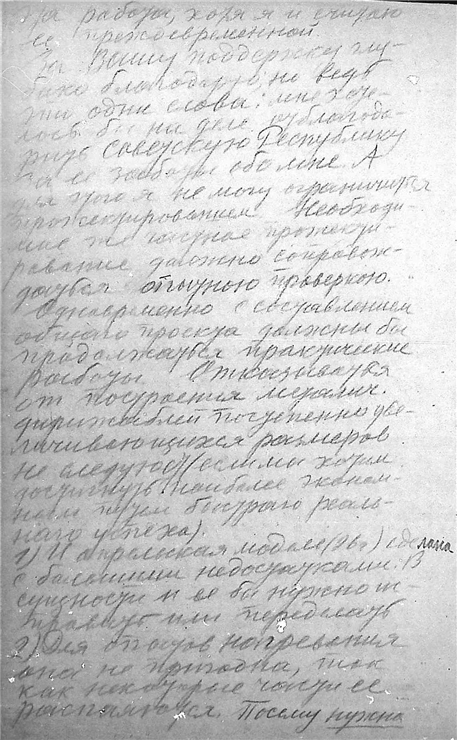 за работы, хотя я и считаю
ее преждевременной.
За Вашу поддержку глу-
боко благодарю, но ведь
это одни слова: мне хоте-
лось бы на деле отблагода-
рить Советскую Республику
за ее заботы обо мне. А
для этого я не могу ограничится
прожектированием. Необходи-
мое же частное прожекти-
рование должно сопровож-
даться опытною проверкою.
Одновременно с составлением
общаго проекта должны бы
продолжаться практические
работы. Отказываться
от построения металич.
дирижаблей постепенно уве-
личивающихся размеров
не следует (если мы хотим
достигнуть наиболее эконом-
ным путем быстраго реаль-
наго успеха).
1) И апрельская модель (26 г) сделана
с большими недостатками. В
сущности и ее бы нужно ис-
править или переделать
2) Для опытов нагревания
она не пригодна, так
как некоторые части ее
распаяются. Посему нужна